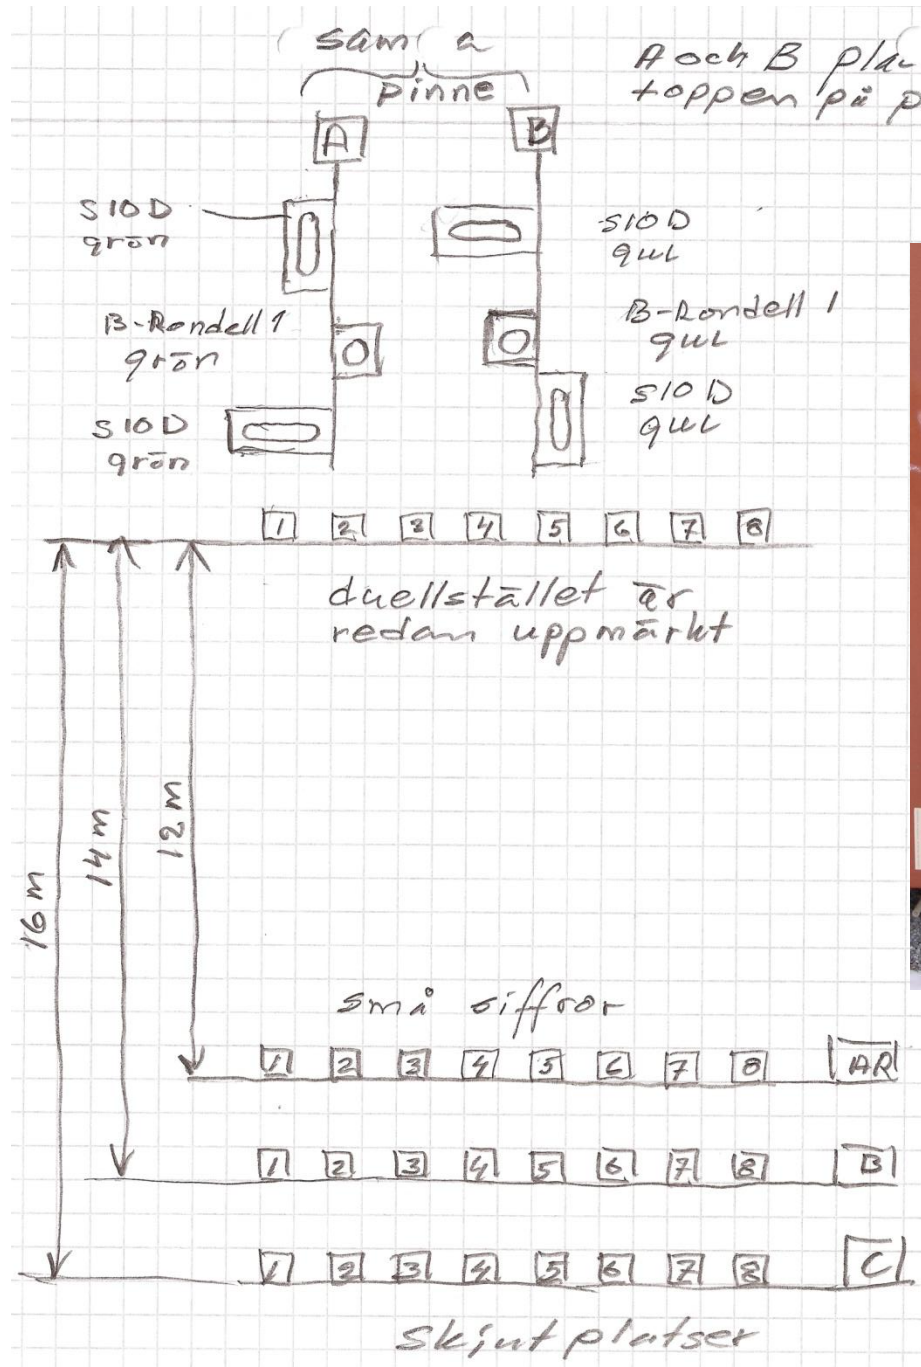 samma
pinne
A och B pla
toppen på p
A
B
S10D
grön
S10D
gul
B-Rondell 1
grön
B-Rondell 1
gul
S10D
grön
S10D
gul
1 2 3 4 5 6 7 8
duellstället är
redan uppmärkt
16 m
14 m
12 m
små siffror
1 2 3 4 5 6 7 8 AR
1 2 3 4 5 6 7 8 B
1 2 3 4 5 6 7 8 C
Skjutplatser